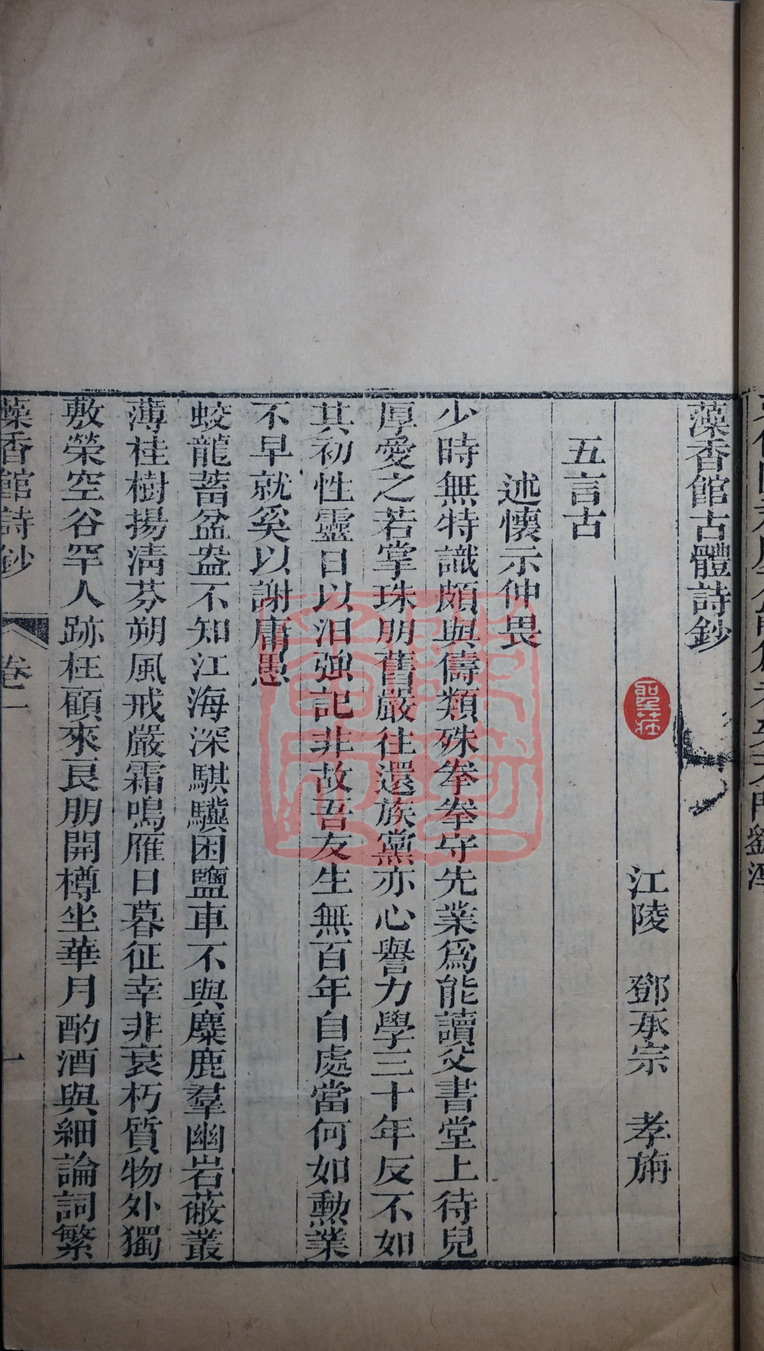 藻香館古體詩鈔
江陵　鄧承宗　孝旃
五言古
述懷示仲畏
少時無特識頗與儔類殊拳拳守先業爲能讀父書堂上待兒
厚愛之若掌珠朋舊嚴往還族黨亦心譽力學三十年反不如
其初性靈日以汨強記非故吾友生無百年自處當何如勳業
不早就奚以謝庸愚
蛟龍蓄盆盎不知江海深騏驥困鹽車不與麋鹿羣幽岩蔽叢
薄桂樹揚清芬朔風戒嚴霜鳴雁日暮征幸非衰朽質物外獨
敷榮空谷罕人跡枉顧來良朋開樽坐華月酌酒與細論詞繁
藻香館詩鈔　卷一　一
聖莊